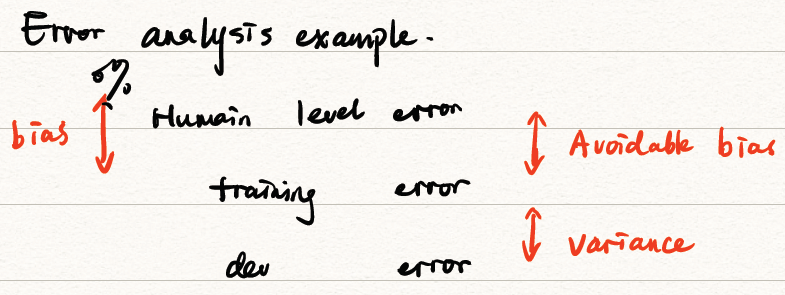 Error analysis example.
0%
Humain level error
bias
Avoidable bias
training error
variance
dev error